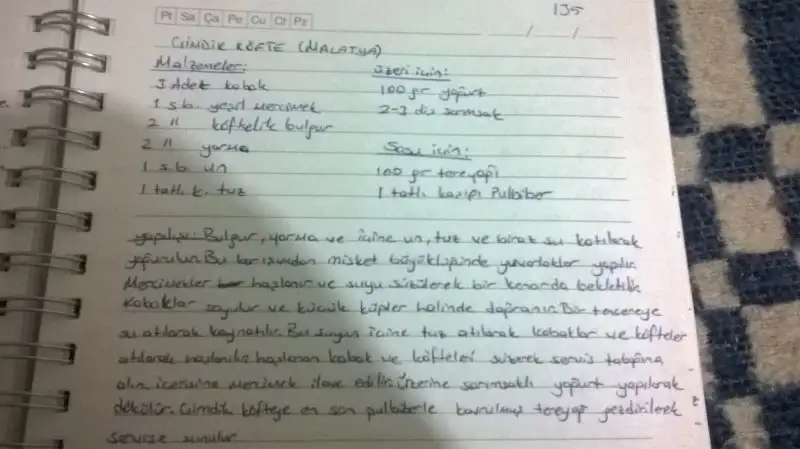 135
Pt Sa Ça Pe Cu Ct Pz
ÇİMDİK KÖFTE (MALATYA)
Malzemeler:
3 Adet kabak
1 s.b. yeşil mercimek
2 " köftelik bulgur
2 " yarma
1 s.b. un
1 tatl. k. tuz
üzeri için:
100 gr yoğurt
2-3 diş sarımsak
Sosu için:
100 gr tereyağı
1 tatlı kaşığı Pulbiber
yapılışı: Bulgur, yarma ve içine un, tuz ve biraz su katılarak
yoğurulur. Bu karışımdan misket büyüklüğünde yuvarlaklar yapılır.
Mercimekler haşlanır ve suyu süzülerek bir kenarda bekletilir.
Kabaklar soyulur ve küçük küpler halinde doğranır. Bir tencereye
su atılarak kaynatılır. Bu suyun içine tuz atılarak kabaklar ve köfteler
atılarak haşlanılır haşlanan kabak ve köfteleri süzerek servis tabağına
alın içerisine mercimek ilave edilir. Üzerine sarımsaklı yoğurt yapılarak
dökülür. Çimdik köfteye en son pulbiberle kavrulmuş tereyağı gezdirilerek
servise sunulur